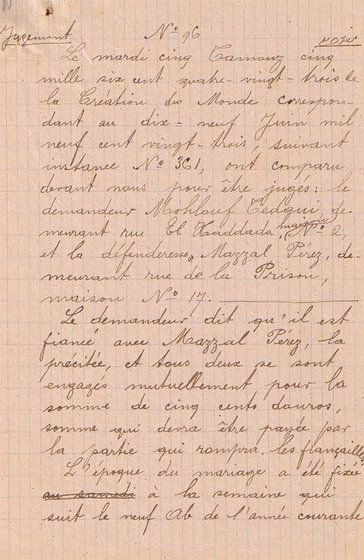 Jugement
Nº 96
פסק דין
Le mardi cinq Tamouz cinq
mille six cent quatre-vingt-trois de
la Création du Monde correspon
dant au dix-neuf Juin mil
neuf cent vingt-trois, suivant
instance Nº 361, ont comparu
devant nous pour être jugés: le
demandeur Mohlouf Tedgui, de-
murant rue El Haddada, maison Nº 2,
et la défenderesse, Mazzal Pérez, de-
meurant rue de la Prison,
maison Nº 17.
Le demandeur dit qu'il est
fiancé avec Mazzal Pérez, la
précitée, et tous deux se sont
engagés mutuellement pour la
somme de cinq cents douros,
somme qui devra être payée par
la partie qui rompra les fiançailles.
L'époque du mariage a été fixée
au samedi à la semaine qui
suit le neuf Ab de l'année courante